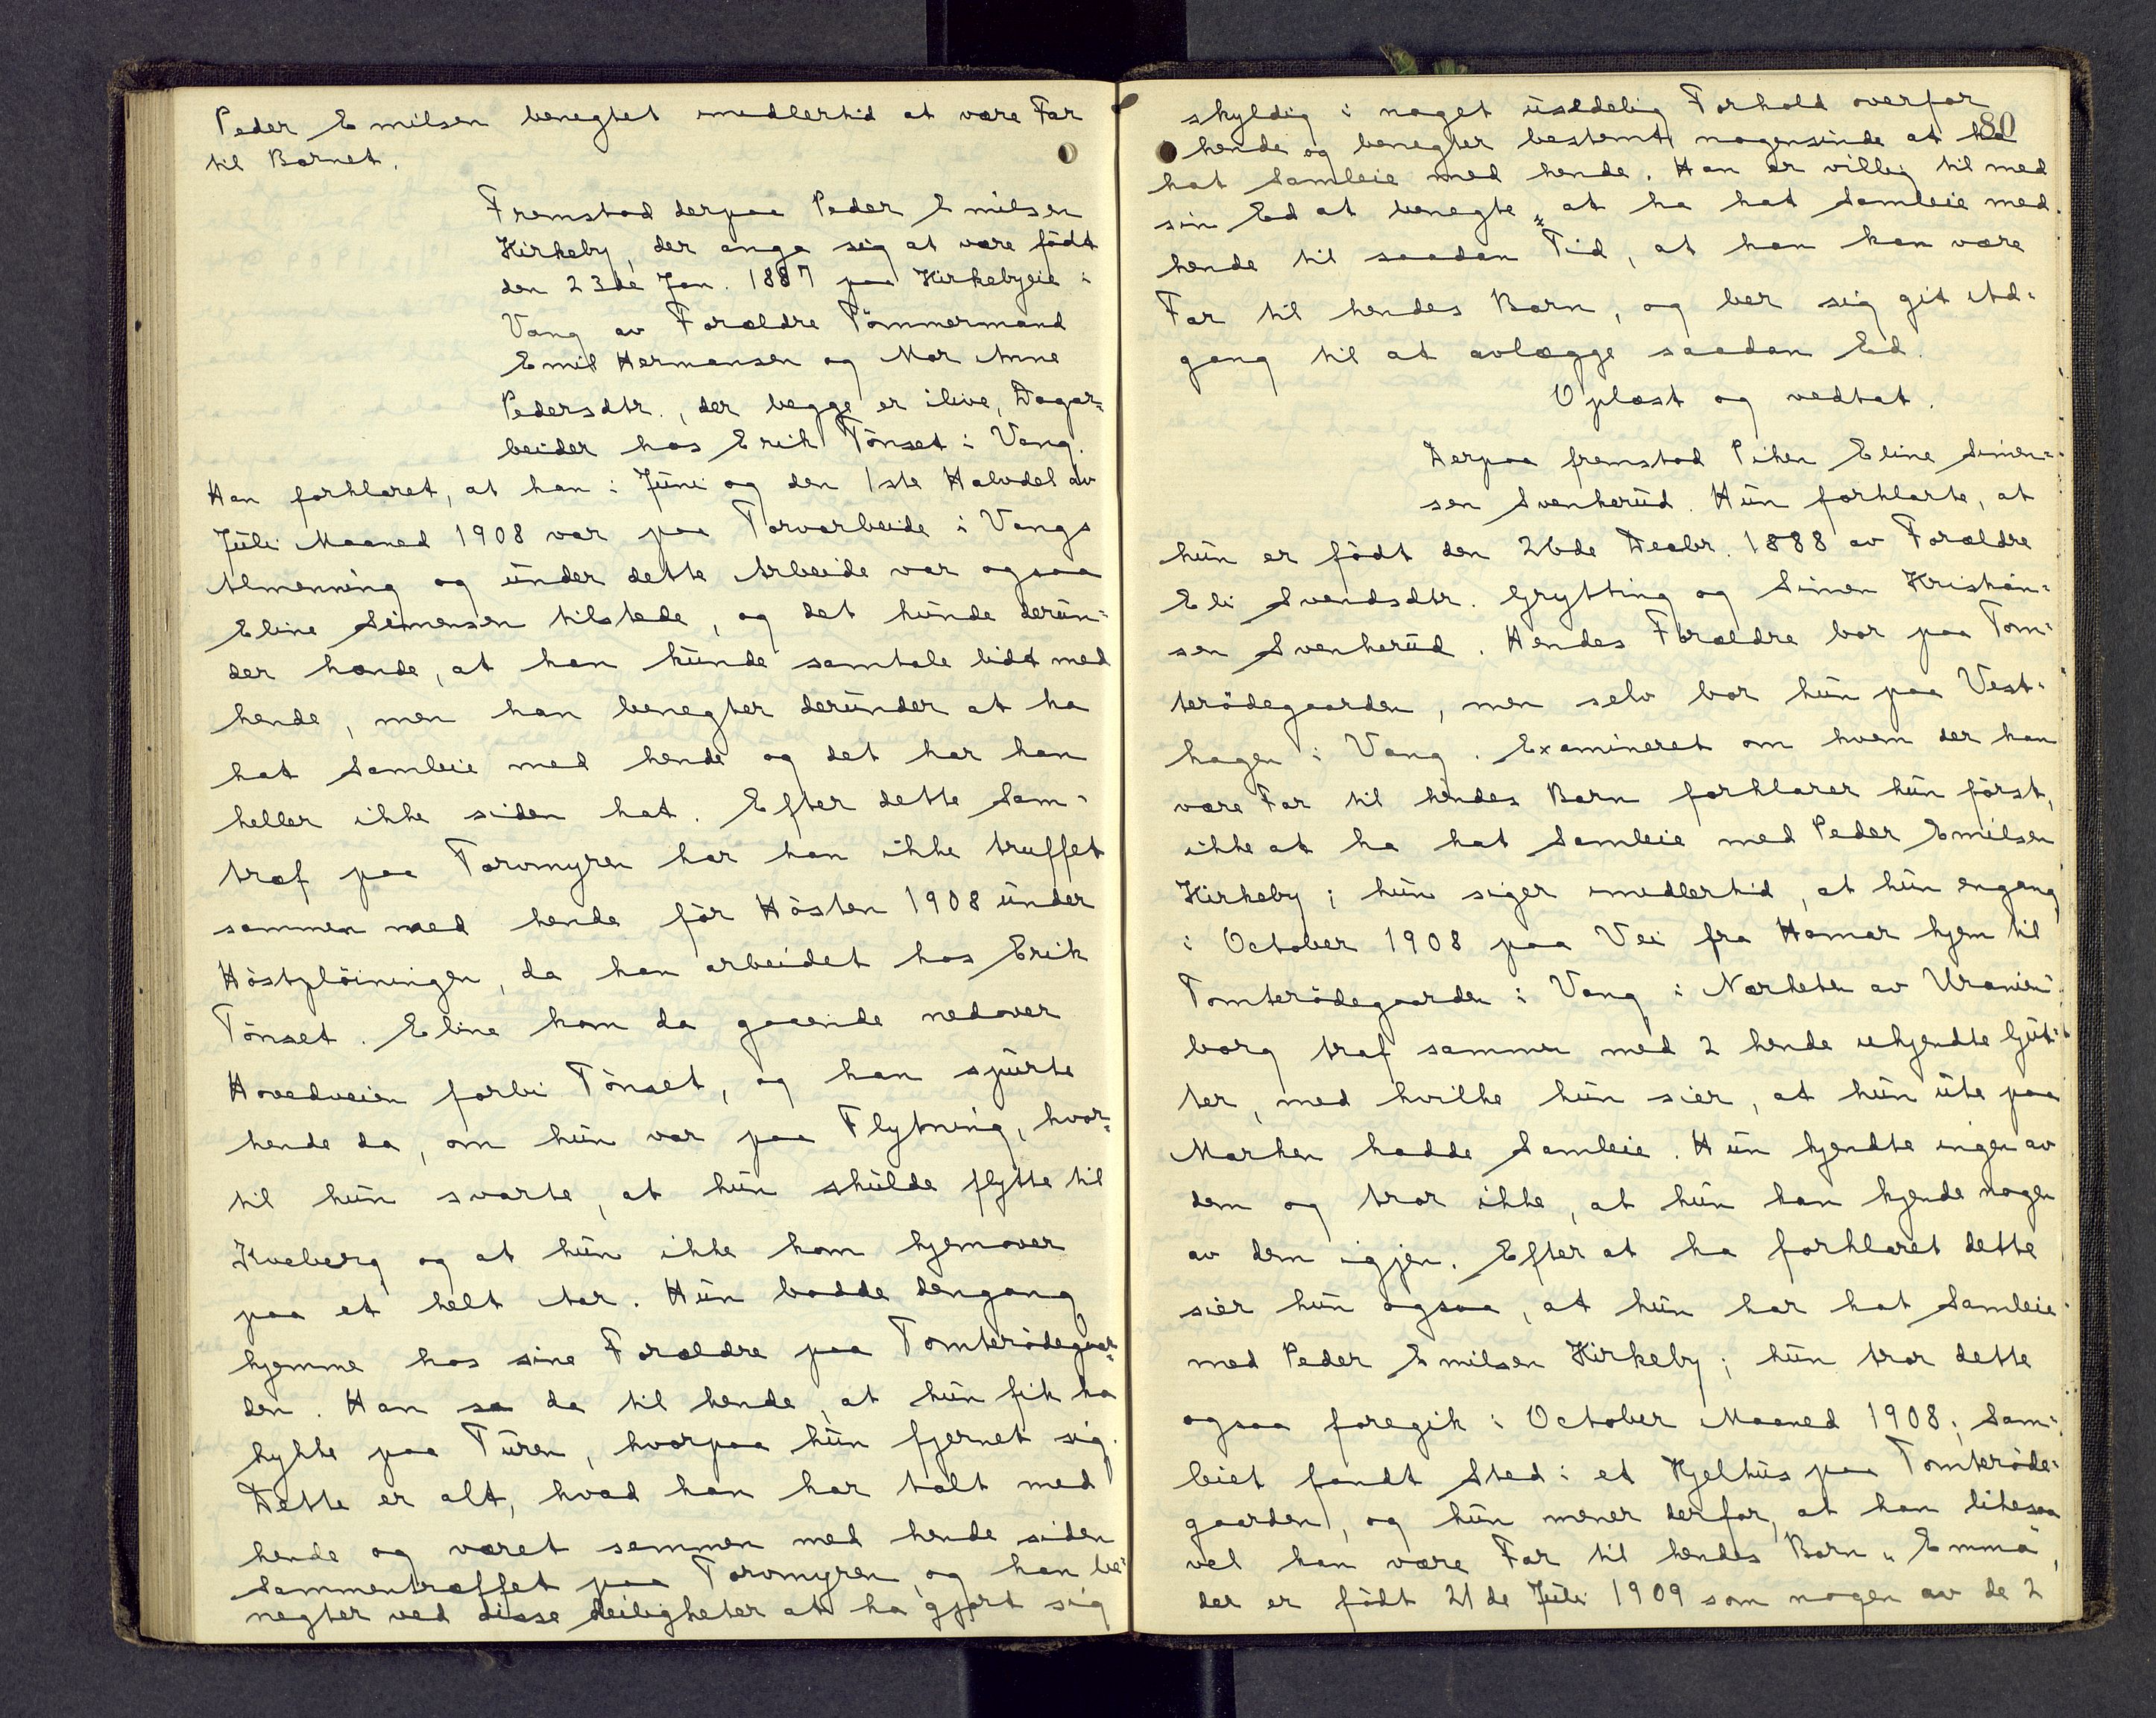 Peder Emilsen benegtet imedlertid at være Far
til Barnet.
Fremstod derpaa Peder Emilsen
Kirkeby, der anga sig at være födt
den 23de Jan. 1887 paa Kirkebyeie i
Vang av Forældre Tömmermand
Emil Hermansen og Mor Anne
Pedersdtr., der begge er ilive, Dagar=
beider hos Erik Tönset i Vang.
Han forklaret, at han i Juni og den 1ste Halvdel av
Juli Maaned 1908 var paa Torvarbeide i Vangs
Almenning og under dette Arbeide var ogsaa
Eline Simensen tilstede, og det hünde derün=
der hænde, at han kunde samtale lidt med
hende, men han benegter derunder at ha
hat Samleie med hende og det har han
heller ikke siden hat. Efter dette Sam=
træf paa Torvmyren har han ikke truffet
sammen med hende för Hösten 1908 under
Höstplöiningen, da han arbeidet hos Erik
Tönset. Eline kom da gaaende nedover
Hovedveien forbi Tönset, og han spurte
hende da, om hun var paa Flytning, hvor=
til hun svarte, at hun skulde flytte til
Kveberg og at hun ikke kom hjemover
paa et helt Aar. Hun bodde dengang
hjemme hos sine Forældre paa Tomterödegaar=
den. Han sa da til hende, at hun fik ha
lykke paa Turen, hvorpaa hun fjernet sig.
Dette er alt, hvad han har talt med
hende og været sammen med hende siden
Sammentræffet paa Torvmyren og han be=
negter ved disse Leiligheter at ha gjort sig
80
skyldig i noget usædelig Forhold overfor
hende og benegter bestemt nogensinde at ha
hat Samleie med hende. Han er villig til med
sin Ed at benegte "at ha hat Samleie med
hende til saadan Tid, at han kan være
Far til hendes Barn, og ber sig git Ad=
gang til at avlægge saadan Ed.
Oplæst og vedtat.
Derpaa fremstod Piken Eline Simen=
sen Svenkerud. Hun forklarte, at
hun er födt den 26de Decbr. 1888 av Forældre
Eli Svendsdtr. Grytting og Simen Kristian=
sen Svenkerud. Hendes Forældre bor paa Tom=
terödegaarden, men selv bor hun paa Vest=
hagen i Vang. Examineret om hvem der kan
være Far til hendes Barn forklarer hun först,
ikke at ha hat Samleie med Peder Emilsen
Kirkeby; hun siger imedlertid, at hun engang
i October 1908 paa Vei fra Hamar hjem til
Tomterödegaarden i Vang i Nærheten av Uranien=
borg traf sammen med 2 hende ukjendte Gut=
ter, med hvilke hun sier, at hun ute paa
Marken hadde Samleie. Hun kjendte ingen av
dem og tror ikke, at hun kan kjende nogen
av dem igjen. Efter at ha forklaret dette
sier hun ogsaa, at hun har hat Samleie
med Peder Emilsen Kirkeby; hun tror dette
ogsaa foregik i October Maaned 1908; Sam=
leiet fandt Sted i et Kjelhus paa Tomteröde=
gaarden, og hun mener derfor, at han likesaa
vel kan være Far til hendes Barn "Emma",
der er födt 21de Juli 1909 som nogen av de 2